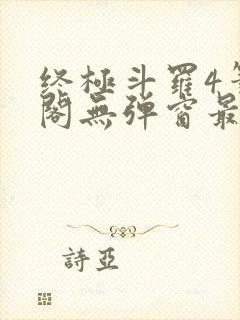 终極斗羅4
閣無弹窗最
詩亞